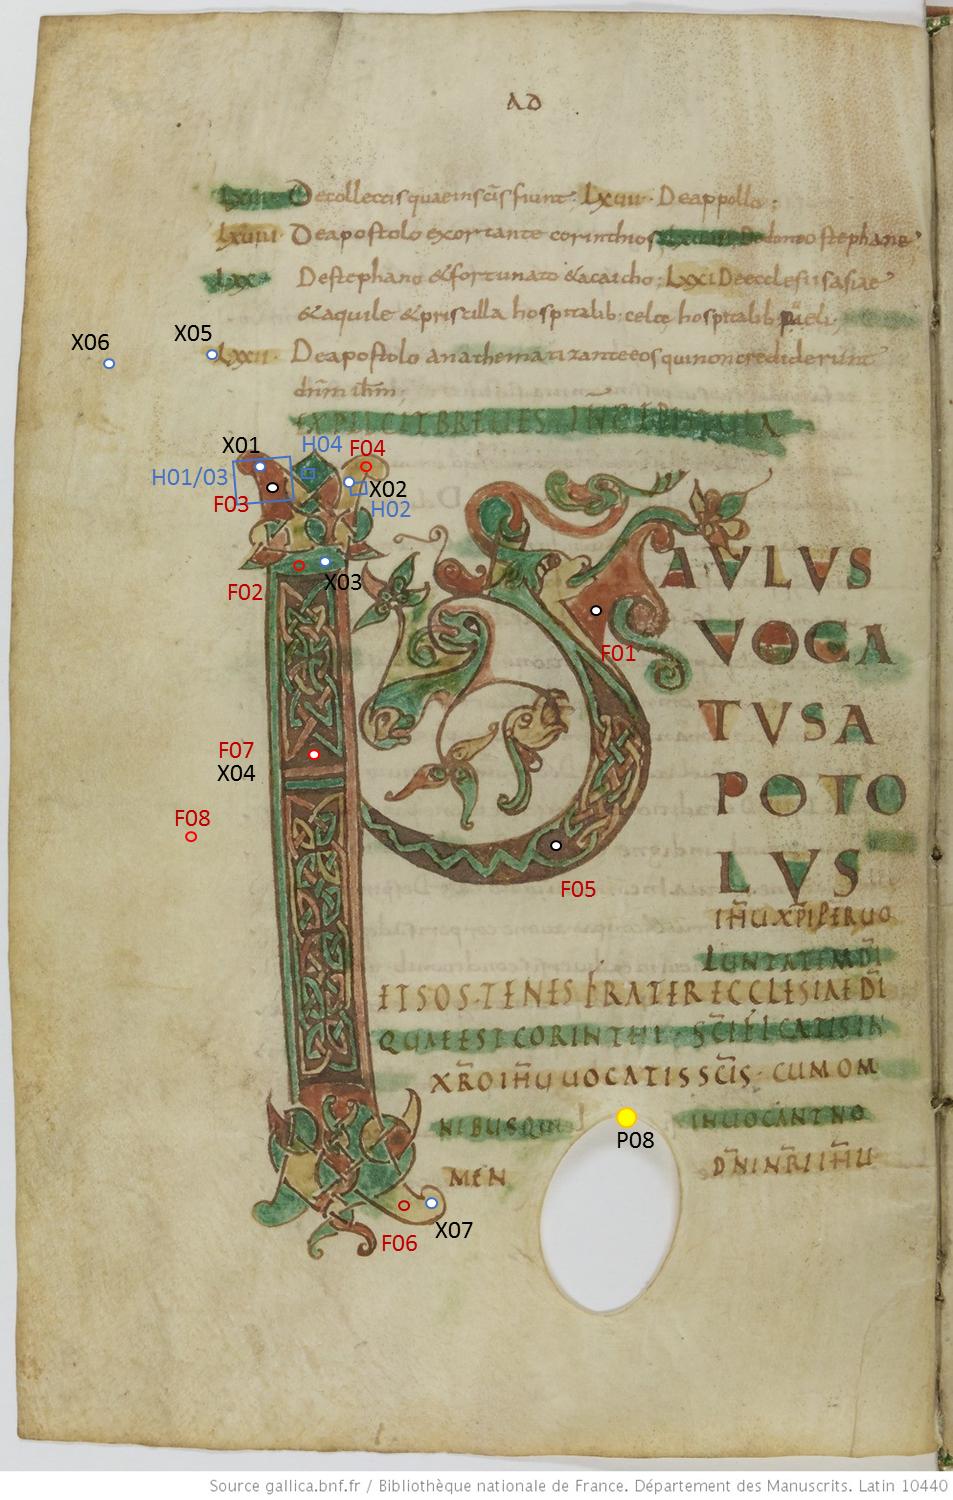 AD
LXVII · De collectis quae in sc̄is fiunt; LXVIII · De appollo;
LXVIIII · De apostolo exortante corinthios
LXX · De stephano & fortunato & acaicho; LXXI De ecclesiis asiae
& aquile & priscilla hospitalib: celce hospitalib
X06 X05 LXXII · De apostolo anathematizante eos qui non crediderunt
dn̄m ih̄m;
EXPLICIT BREUES · INCIPIT
X01 H04 F04
H01/03 X02
F03 H02
F02 X03
PAULUS
F01
VOCA
TVSA
F07
X04
POTO
F08
LVS
F05
IH̄U XP̄I PER UO
LUNTATEM DĪ
ET SOSTENES FRATER ECCLESIAE DĪ
QUAE EST CORINTHI · SC̄IFICATIS IN
XR̄O IH̄U UOCATIS SC̄IS · CUM OM
NIBUS QUI INUOCANT NO
P08
MEN DN̄I NR̄I IH̄U
X07
F06
Source gallica.bnf.fr / Bibliothèque nationale de France. Département des Manuscrits. Latin 10440